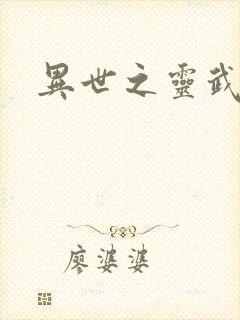 異世之靈武
廖婆婆